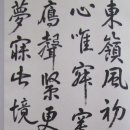 東嶺風初
心唯寂寞
鴈聲緊更
夢寐出境